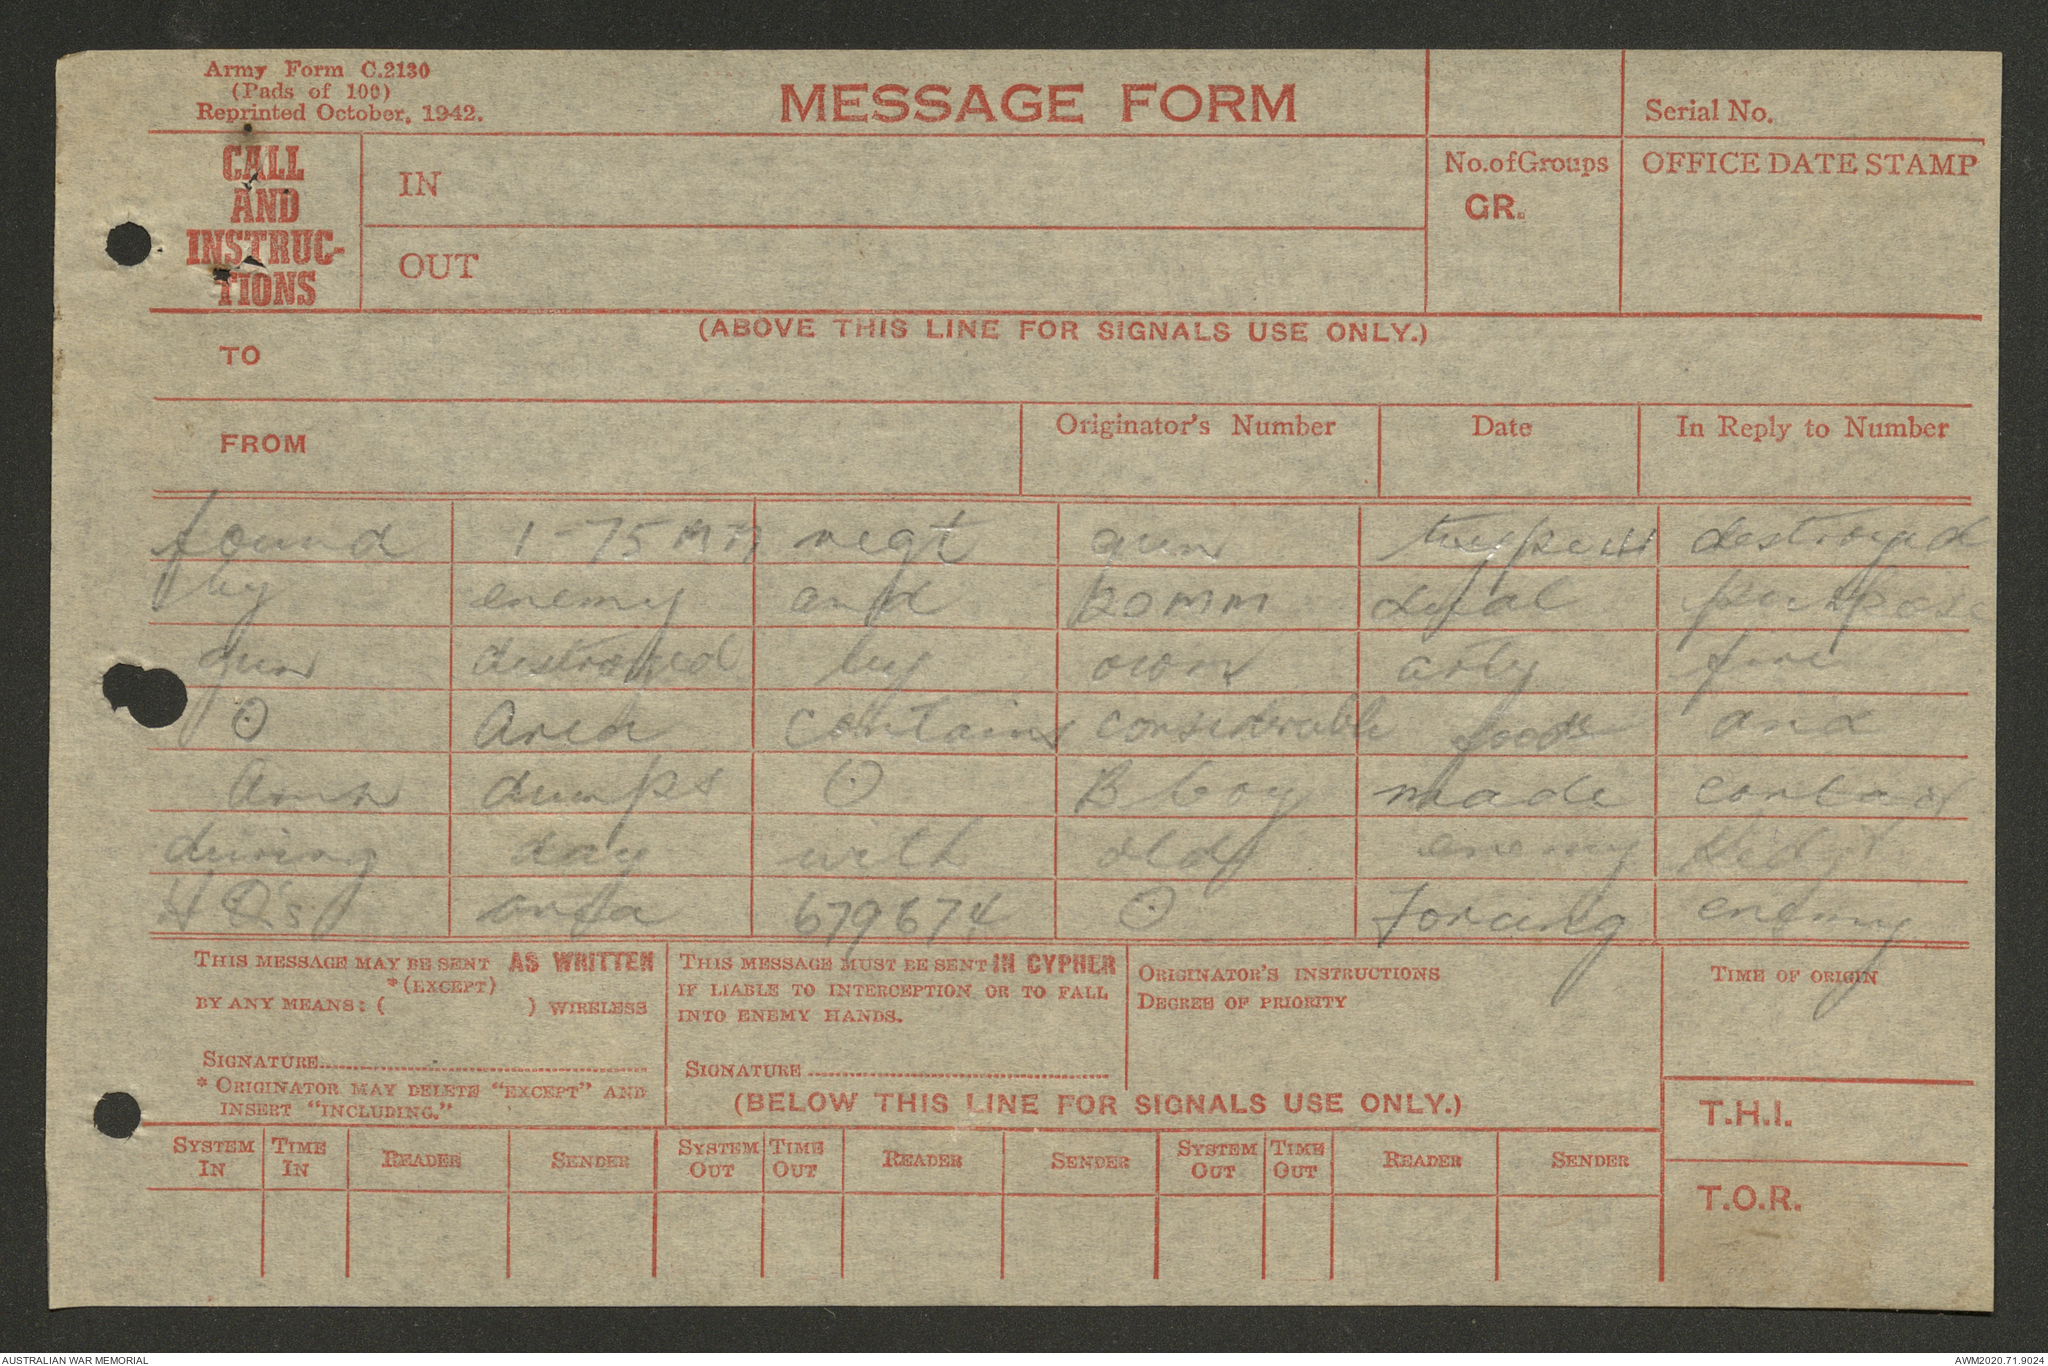 Army Form C.2130
(Pads of 100)
Reprinted October, 1942.
MESSAGE FORM
Serial No.
CALL
AND
INSTRUC-
TIONS
IN
OUT
No. of Groups
GR.
OFFICE DATE STAMP
(ABOVE THIS LINE FOR SIGNALS USE ONLY.)
TO
FROM
Originator's Number
Date
In Reply to Number
found 1-75MM regt gun destroyed
by enemy and 20MM dual purpose
gun destroyed by own arty fire
O Area contains considerable foods and
Amn dumps O B Coy made contact
during day with old enemy
HQ's area 679674 O Forcing enemy
THIS MESSAGE MAY BE SENT AS WRITTEN
*(EXCEPT)
BY ANY MEANS: ( ) WIRELESS
SIGNATURE
* ORIGINATOR MAY DELETE "EXCEPT" AND
INSERT "INCLUDING."
THIS MESSAGE MUST BE SENT IN CYPHER
IF LIABLE TO INTERCEPTION OR TO FALL
INTO ENEMY HANDS.
SIGNATURE
ORIGINATOR'S INSTRUCTIONS
DEGREE OF PRIORITY
TIME OF ORIGIN
(BELOW THIS LINE FOR SIGNALS USE ONLY.)
T.H.I.
T.O.R.
SYSTEM IN TIME IN READER SENDER SYSTEM OUT TIME OUT READER SENDER SYSTEM OUT TIME OUT READER SENDER
AUSTRALIAN WAR MEMORIAL
AWM2020.71.9024